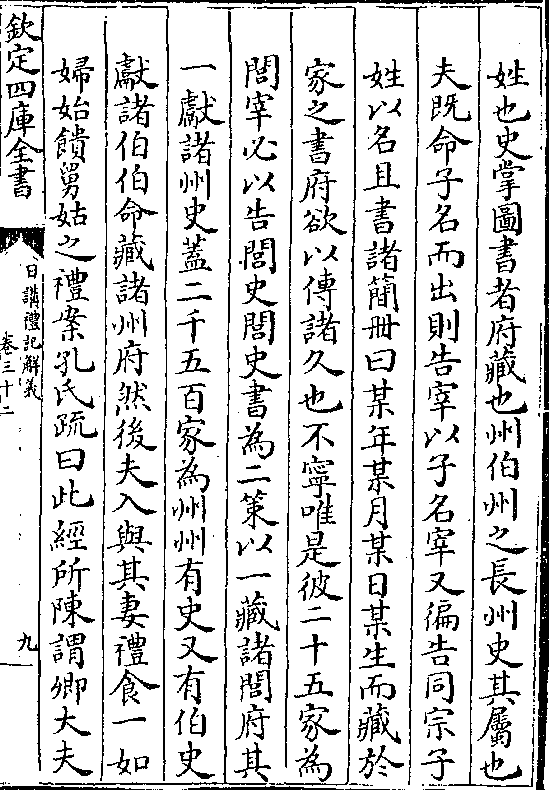 姓也史掌圖書者府藏也州伯州之長州史其屬也
夫既命子名而出則告宰以子名宰又徧告同宗子
姓以名且書諸簡冊曰某年某月某日某生而藏於
家之書府欲以傳諸久也不寧唯是彼二十五家為
閭宰必以告閭史閭史書為二策以一藏諸閭府其
一獻諸州史蓋二千五百家為州州有史又有伯史
獻諸伯伯命藏諸州府然後夫入與其妻禮食一如
婦始饋舅姑之禮案孔氏疏曰此經所陳謂卿大夫
欽定四庫全書
日講禮記解義
卷三十二
九